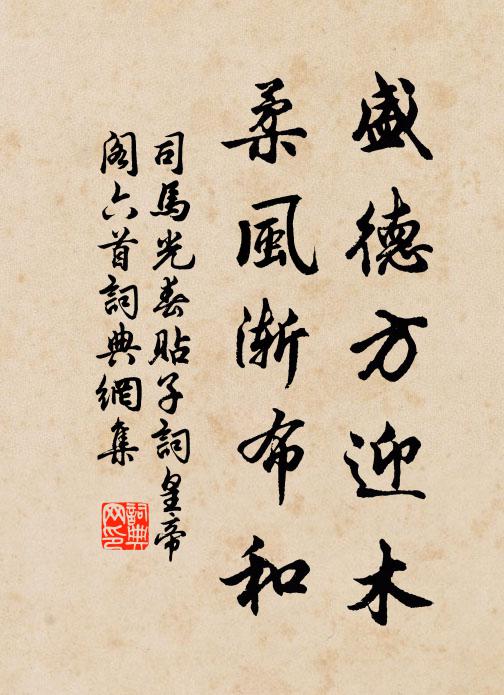 盛德方迎木
柔風漸布和
司馬光春貼子詞皇帝
閣六首詞典網集
詞典
网印